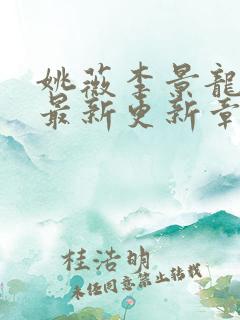 姚薇李景龍
最新更新章
桂浩明
未经同意禁止转载